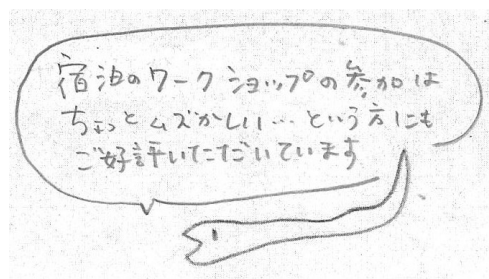 宿泊のワークショップの参加は
ちょっとムズかしい…という方にも
ご好評いただいています